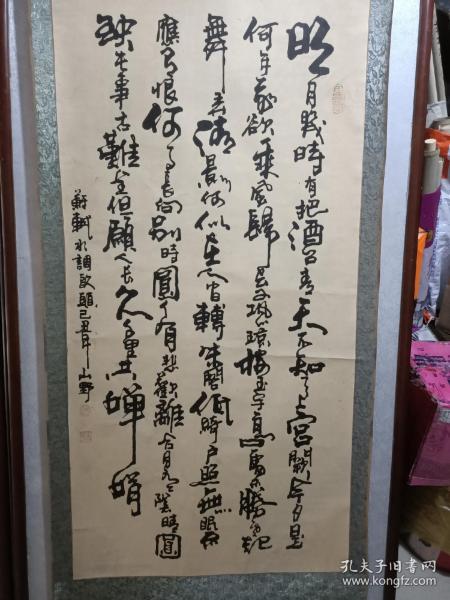 明月幾時有把酒問青天不知天上宮闕今夕是
何年我欲乘風歸去又恐瓊樓玉宇高處不勝寒起
舞弄清影何似在人間轉朱閣低綺戶照無眠不
應有恨何事長向別時圓人有悲歡離合月有陰晴圓
缺此事古難全但願人長久千里共嬋娟
蘇軾水調歌頭己丑年山野
孔夫子旧书网
www.kongfz.com